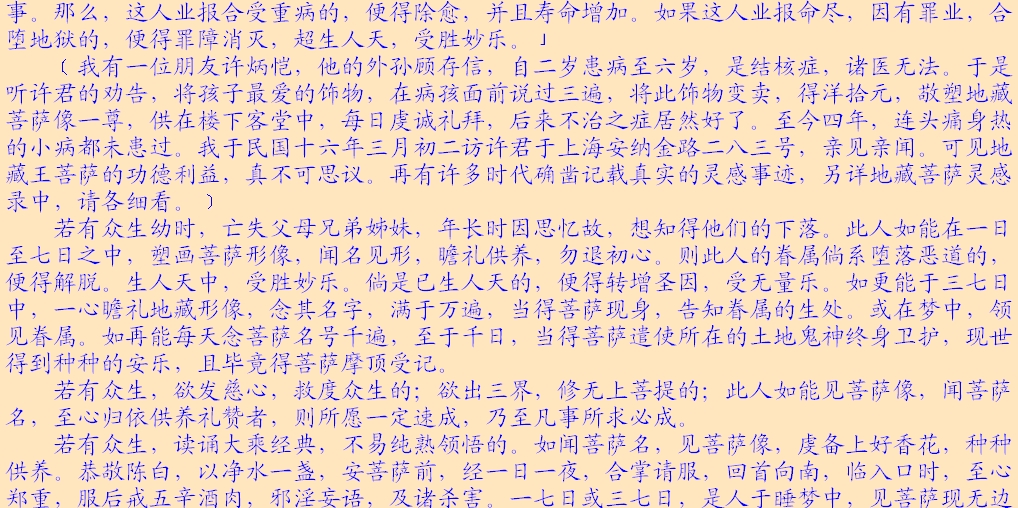 事。那么，这人业报合受重病的，便得除愈，并且寿命增加。如果这人业报命尽，因有罪业，合
堕地狱的，便得罪障消灭，超生人天，受胜妙乐。」
﹝我有一位朋友许炳恺，他的外孙顾存信，自二岁患病至六岁，是结核症，诸医无法。于是
听许君的劝告，将孩子最爱的饰物，在病孩面前说过三遍，将此饰物变卖，得洋拾元，敬塑地藏
菩萨像一尊，供在楼下客堂中，每日虔诚礼拜，后来不治之症居然好了。至今四年，连头痛身热
的小病都未患过。我于民国十六年三月初二访许君于上海安纳金路二八三号，亲见亲闻。可见地
藏王菩萨的功德利益，真不可思议。再有许多时代确凿记载真实的灵感事迹，另详地藏菩萨灵感
录中，请各细看。﹞
若有众生幼时，亡失父母兄弟姊妹，年长时因思忆故，想知得他们的下落。此人如能在一日
至七日之中，塑画菩萨形像，闻名见形，瞻礼供养，勿退初心。则此人的眷属倘系堕落恶道的，
便得解脱。生人天中，受胜妙乐。倘是已生人天的，便得转增圣因，受无量乐。如更能于三七日
中，一心瞻礼地藏形像，念其名字，满于万遍，当得菩萨现身，告知眷属的生处。或在梦中，领
见眷属。如再能每天念菩萨名号千遍，至于千日，当得菩萨遣使所在的土地鬼神终身卫护，现世
得到种种的安乐，且毕竟得菩萨摩顶受记。
若有众生，欲发慈心，救度众生的；欲出三界，修无上菩提的；此人如能见菩萨像，闻菩萨
名，至心归依供养礼赞者，则所愿一定速成，乃至凡事所求必成。
若有众生，读诵大乘经典，不易纯熟领悟的。如闻菩萨名，见菩萨像，虔备上好香花，种种
供养。恭敬陈白，以净水一盏，安菩萨前，经一日一夜，合掌请服，回首向南，临入口时，至心
郑重，服后戒五辛酒肉，邪淫妄语，及诸杀害。一七日或三七日，是人于睡梦中，见菩萨现无边